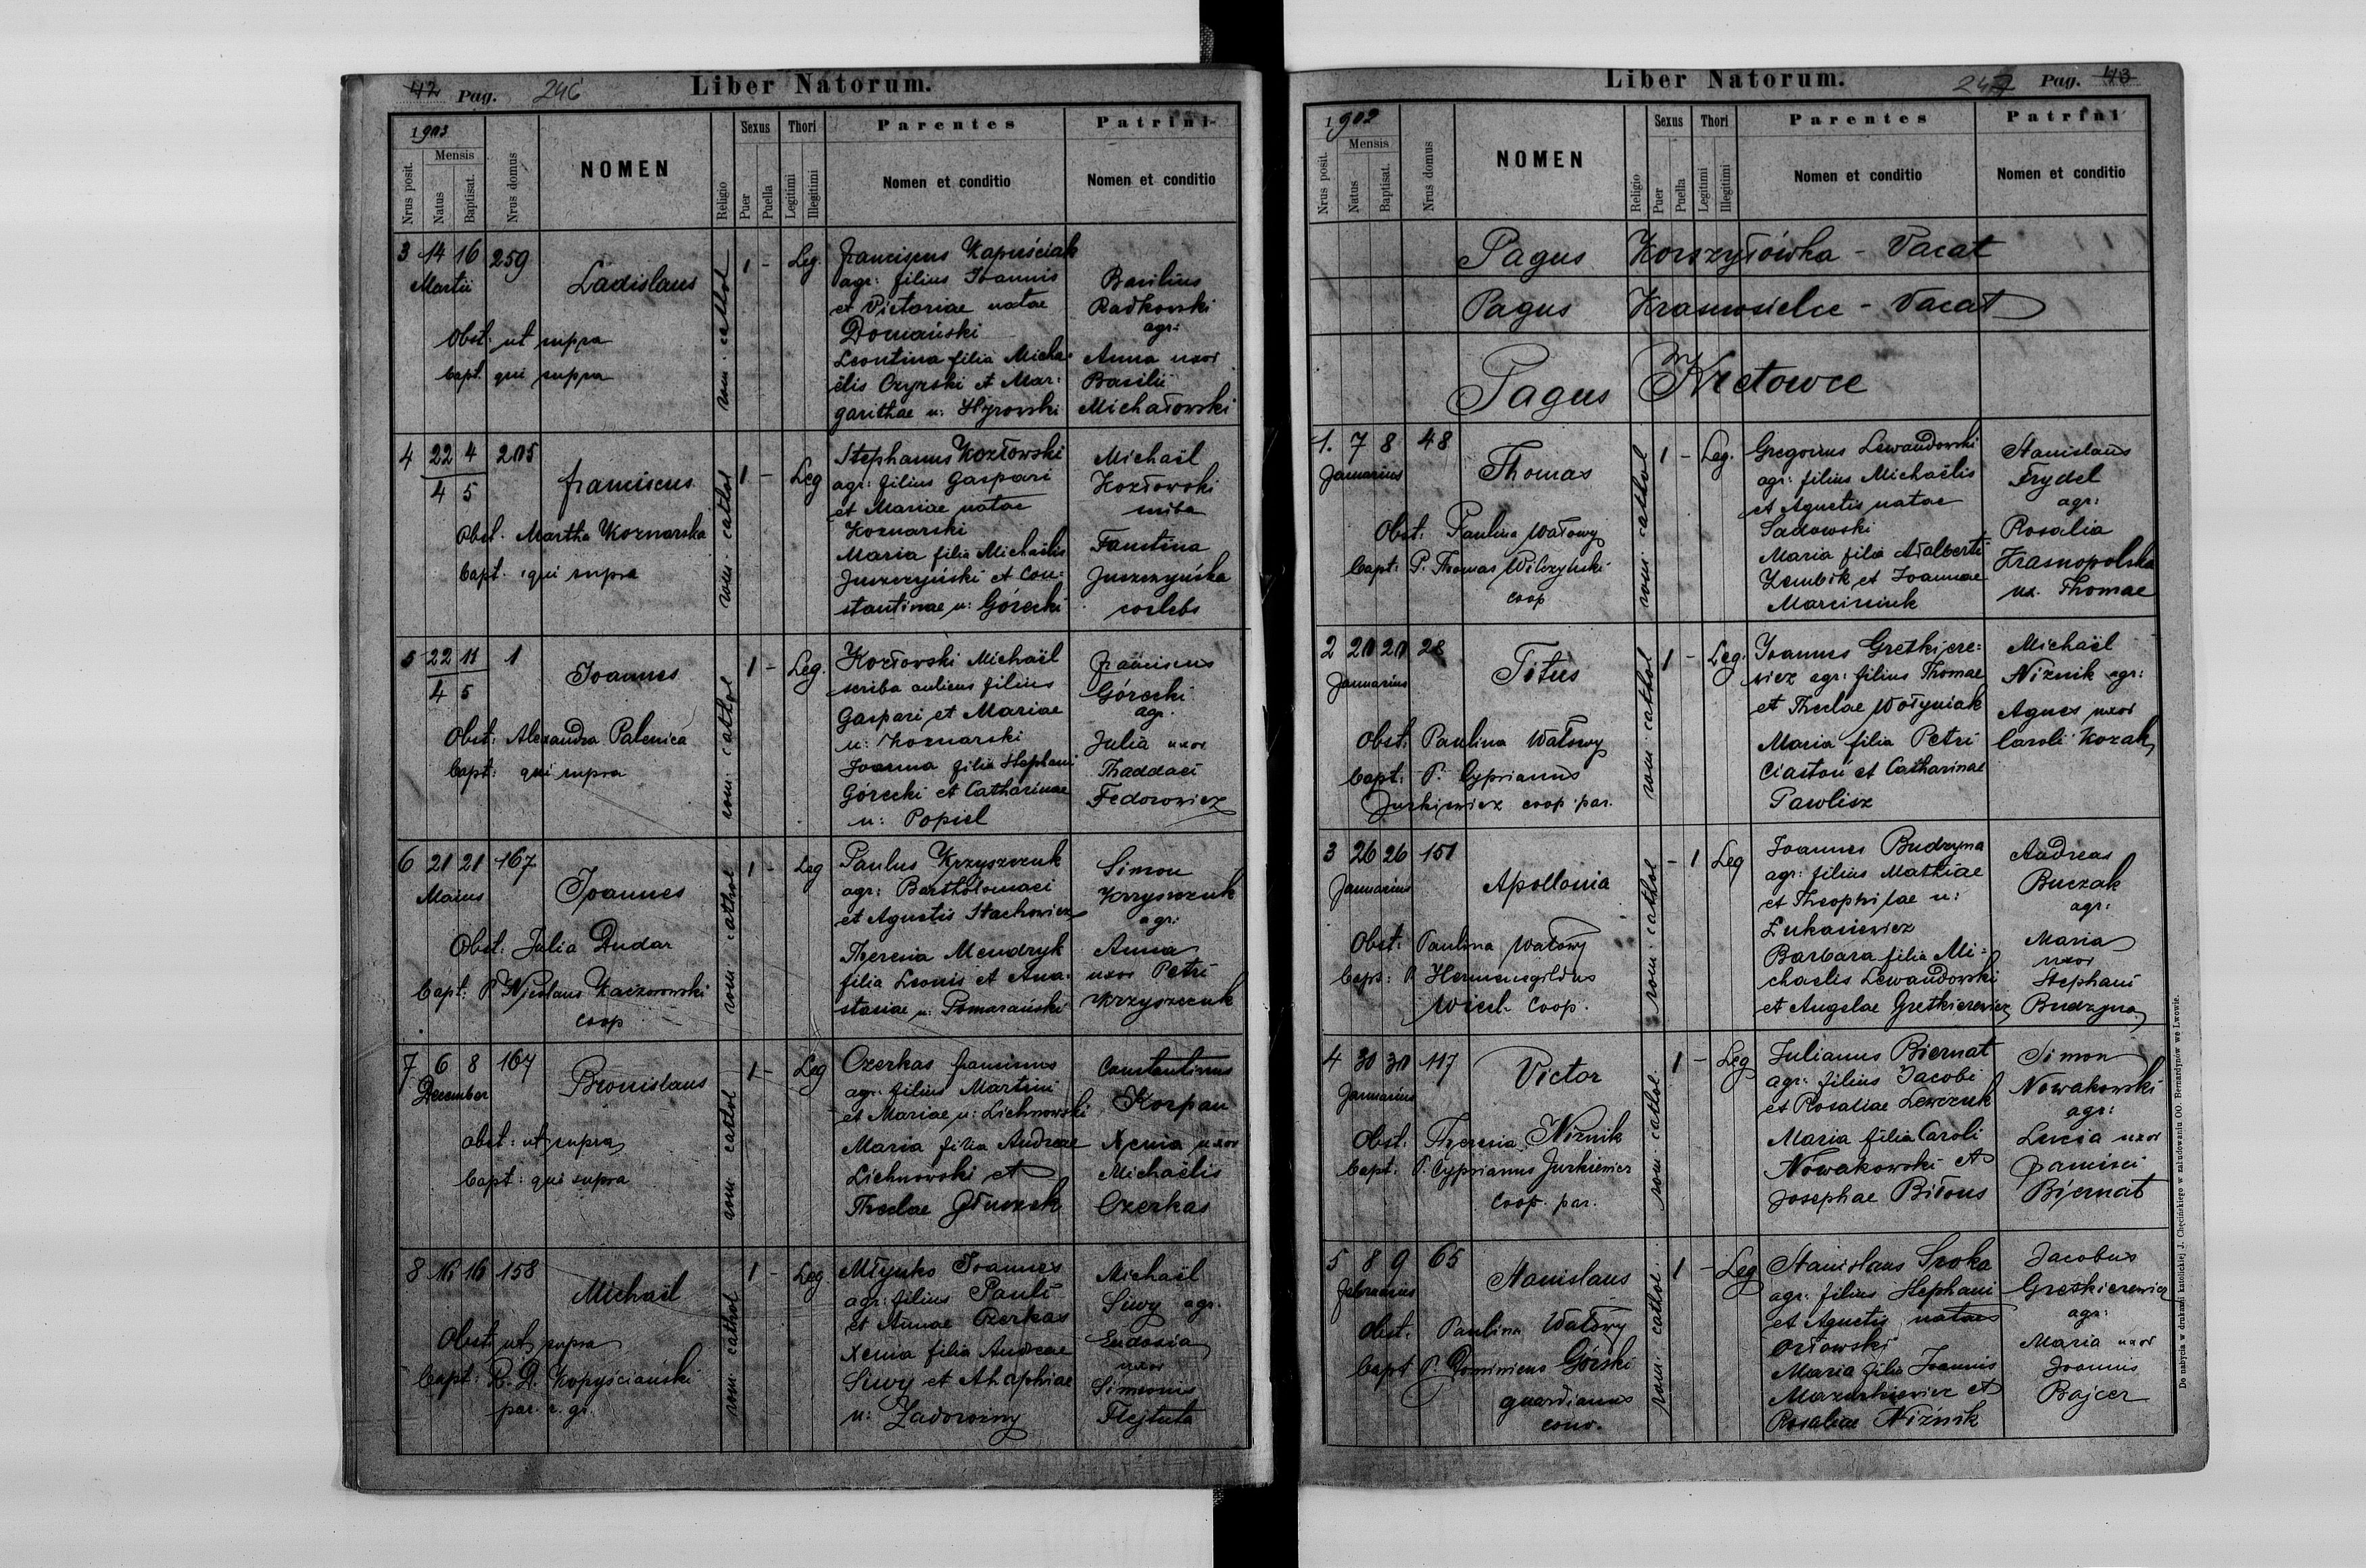 42 Pag. 246 Liber Natorum.
1903
Nrus posit.
Mensis
Natus
Baptisat.
Nrus domus
NOMEN
Religio
Sexus
Puer
Puella
Thori
Legitimi
Illegitimi
Parentes
Nomen et conditio
Patrini
Nomen et conditio
3 14 16 259
Martii
Ladislaus
Obst: ut supra
bapt. qui supra
rom. cathol
1 - Leg.
Franciscus Kapuściak
agr: filius Joannis
et Victoriae natae
Domański
Leontina filia Micha-
ëlis Czyrski et Mar:
garithae n: Hyrowski
Basilius
Radkowski
agr:
Anna uxor
Basilii
Michałowski
4 22 4 205
4 5
Franciscus
Obst. Martha Koznarska
bapt. qui supra
rom. cathol
1 - Leg
Stephanus Kozłowski
agr: filius Gaspari
et Mariae natae
Koznarski
Maria filia Michaëlis
Juszczyński et Con:
stantinae n: Górecki
Michaël
Kozłowski
Faustina
Juszczyńska
coelebs
5 22 11 1
4 5
Joannes
Obst: Alexandra Palenica
bapt: qui supra
rom. cathol
1 - Leg.
Kozłowski Michaël
scriba aulicus filius
Gaspari et Mariae
n: Koznarski
Joanna filia Stephani
Górecki et Catharinae
n: Popiel
Franciscus
Górecki
agr.
Julia uxor
Thaddaei
Fedorowicz
6 21 21 167
Maius
Joannes
Obst: Julia Dudar
bapt: P. Nicolaus Kaczorowski
coop
rom. cathol
1 - Leg
Paulus Krzyszczuk
agr: Bartholomaei
et Agnetis Stachowicz
Theresia Mendryk
filia Leonis et Ana-
stasiae n: Pomarański
Simon
Krzyszczuk
agr:
Anna
uxor Petri
Krzyszczuk
7 6 8 167
December
Bronislaus
Obst: ut supra
bapt: qui supra
rom. cathol
1 - Leg
Czerkas Franciscus
agr. filius Martini
et Mariae n: Lichnowski
Maria filia Andreae
Lichnowski et
Theclae Głuszek
Constantinus
Korpan
Xenia uxor
Michaëlis
Czerkas
8 16 16 158
Michaël
Obst ut supra
bapt: R. D. Kopyściański
par. r. gr.
rom. cathol
1 - Leg
Młynko Joannes
agr: filius Pauli
et Annae Czerkas
Xenia filia Andreae
Siwy et Ahaphiae
n: Zadorożny
Michaël
Siwy agr.
Eudoxia
uxor
Simeonis
Flejtuta
Liber Natorum. 247 Pag. 43
1902
Nrus posit.
Mensis
Natus
Baptisat.
Nrus domus
NOMEN
Religio
Sexus
Puer
Puella
Thori
Legitimi
Illegitimi
Parentes
Nomen et conditio
Patrini
Nomen et conditio
Pagus Korszyłówka - Vacat
Pagus Krasnosielce - Vacat
Pagus Kretowce
1. 7 8 48
Januarius
Thomas
Obst: Paulina Wałowy
bapt: P. Thomas Wilczyński
coop
rom. cathol
1 - Leg.
Gregorius Lewandowski
agr: filius Michaëlis
et Agnetis natae
Sadowski
Maria filia Adalberti
Zembik et Joannae
Marciniuk
Stanislaus
Frydel
agr:
Rosalia
Krasnopolska
ux. Thomae
2 20 20 28
Januarius
Titus
Obst: Paulina Wałowy
bapt: P. Cyprianus
Jurkiewicz coop. par.
rom. cathol
1 - Leg.
Joannes Gretkiere:
wicz agr: filius Thomae
et Theclae Wołyniak
Maria filia Petri
Ciastoń et Catharinae
Pawlisz
Michaël
Niżnik agr:
Agnes uxor
Caroli Kozak
3 26 26 151
Januarius
Apollonia
Obst: Paulina Wałowy
bapt: P. Hermenegildus
Wierl. coop.
rom. cathol
- 1 Leg
Joannes Budzyna
agr: filius Mathiae
et Theophilae n:
Łukasiewicz
Barbara filia Mi-
chaelis Lewandowski
et Angelae Gretkierewicz
Andreas
Buczak
agr:
Maria
uxor
Stephani
Budzyna
4 30 30 117
Januarius
Victor
Obst: Theresia Niżnik
bapt: P. Cyprianus Jurkiewicz
coop. par.
rom. cathol.
1 - Leg
Julianus Biernat
agr: filius Jacobi
et Rosaliae Lewczuk
Maria filia Caroli
Nowakowski et
Josephae Biłous
Simon
Nowakowski
agr:
Lucia uxor
Francisci
Biernat
5 8 9 65
Februarius
Stanislaus
Obst. Paulina Wałowy
bapt P. Dominicus Górski
guardianus
conv.
rom. cathol.
1 - Leg
Stanislaus Sroka
agr. filius Stephani
et Agnetis natae
Orłowski
Maria filia Joannis
Mazurkiewicz et
Rosaliae Niżnik
Jacobus
Gretkierewicz
agr:
Maria uxor
Joannis
Bajcer
Do nabycia w drukarni katolickiej J. Chęcińskiego w zabudowaniu OO. Bernardynów we Lwowie.